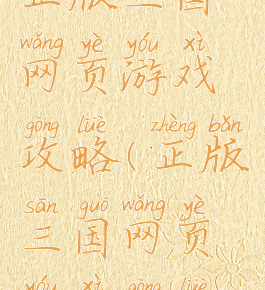 正版三国
wǎng yè yóu xì
网页游戏
gōng lüè zhèng bǎn
攻略(正版
sān guó wǎng yè
三国网页
yóu xì gōng lüè